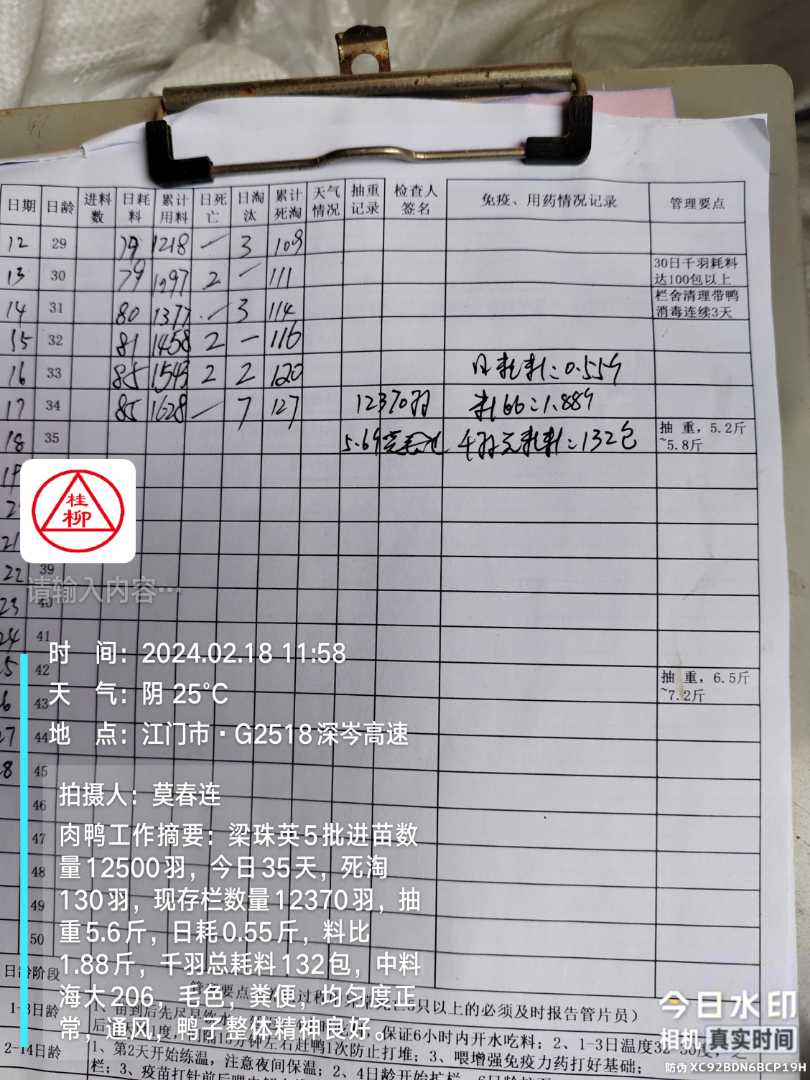 日期 日龄 进料数 日耗料 累计用料 日死亡 日淘汰 累计死淘 天气情况 抽重记录 检查人签名 免疫、用药情况记录 管理要点
12 29 79 1218 — 3 109
13 30 79 1297 2 — 111 30日千羽耗料达100包以上
14 31 80 1377 — 3 114 栏舍清理带鸭消毒连续3天
15 32 81 1458 2 — 116
16 33 85 1543 2 2 120 日耗料:0.55斤
17 34 85 1628 — 7 127 12370羽 料比:1.88斤
18 35 5.6斤 千羽总耗料:132包 抽重,5.2斤~5.8斤
19
桂柳
21
22 39
请输入内容…
23 40
24 41
42 抽重,6.5斤~7.2斤
43
44
45
46
47
48
49
50
时 间:2024.02.18 11:58
天 气:阴 25℃
地 点:江门市·G2518深岑高速
拍摄人:莫春连
肉鸭工作摘要:梁珠英5批进苗数
量12500羽,今日35天,死淘
130羽,现存栏数量12370羽,抽
重5.6斤,日耗0.55斤,料比
1.88斤,千羽总耗料132包,中料
海大206,毛色,粪便,均匀度正
常,通风,鸭子整体精神良好。
日龄阶段
只以上的必须及时报告管片员)
1-3日龄
保证6小时内开水吃料;2、1-3日温度32-
2-14日龄 1、第2天开始练温,注意夜间保温;2、4日龄开始扩栏
栏;3、疫苗打针前后喂
鸭1次防止打堆;3、喂增强免疫力药打好基础;
今日水印
相机 真实时间
防伪 XC92BDN6BCP19H